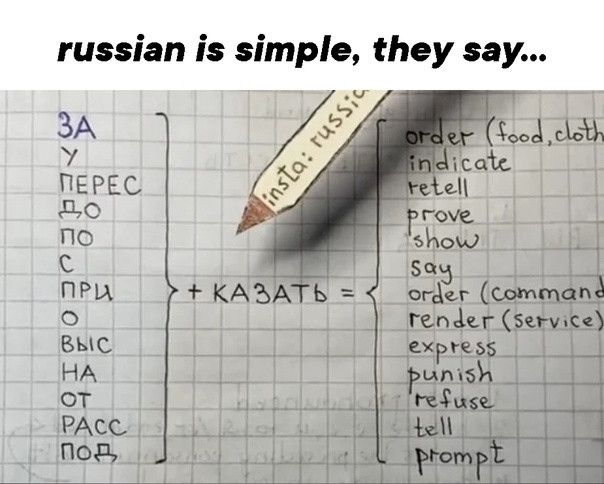 russian is simple, they say...
insta: russia
ЗА
У
ПЕРЕС
ДО
ПО
С
ПРИ
О
ВЫС
НА
ОТ
РАСС
ПОД
+ КАЗАТЬ =
order (food, cloth
indicate
retell
prove
show
say
order (command
render (service)
express
punish
refuse
tell
prompt